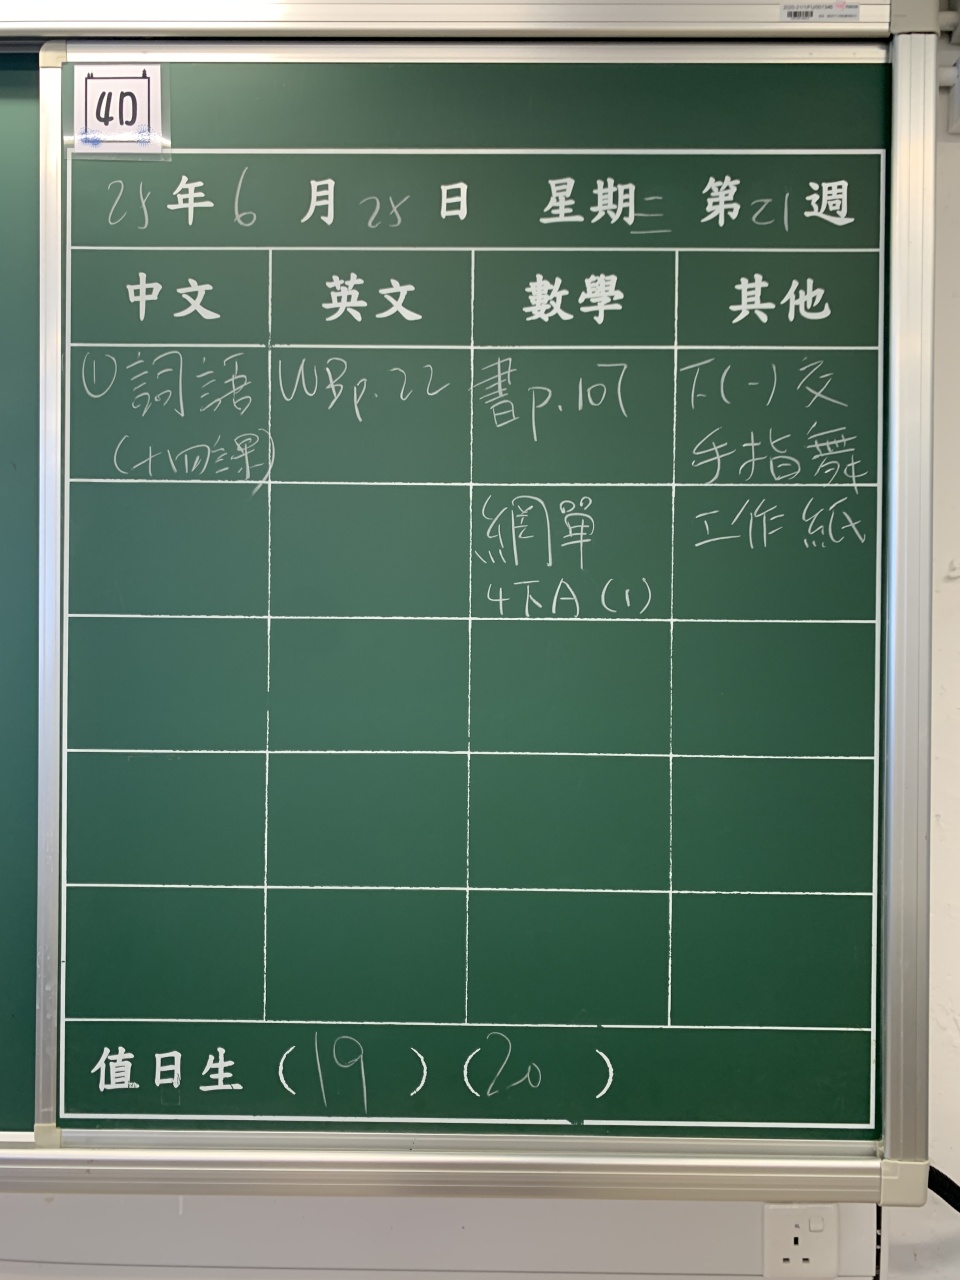 4D
25年6月25日 星期三 第21週
中文 英文 數學 其他
①詞語 WBp.22 書p.107 下(一)交
(十四課) 手指舞
網單 工作紙
4下A(1)
值日生(19)(20)